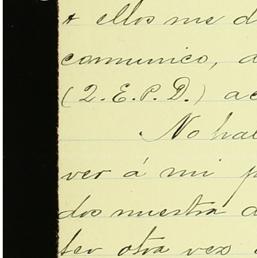 á ellos me d
comunico, a
(Q.E.P.D.) ac
No hal
ver á mi p
dos muestra d
ter otra vez